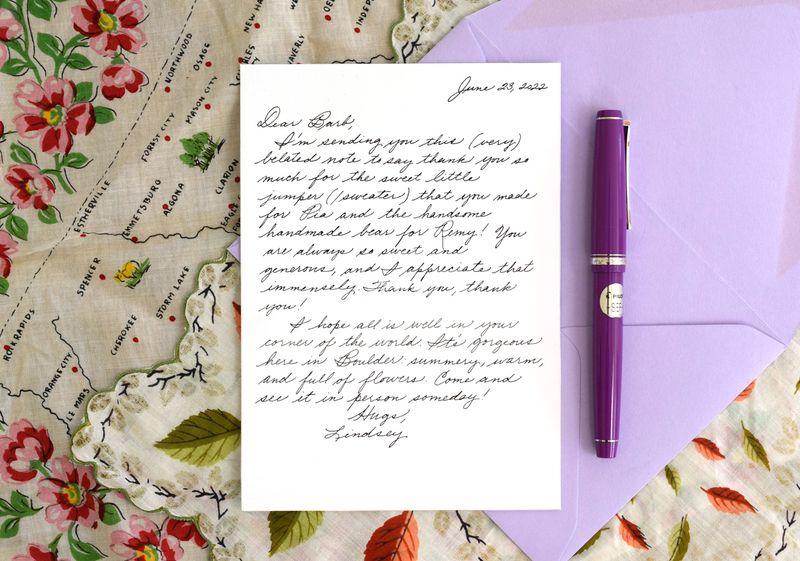 June 23, 2022
Dear Barb,
I'm sending you this (very)
belated note to say thank you so
much for the sweet little
jumper (/sweater) that you made
for Pia and the handsome
handmade bear for Remy! You
are always so sweet and
generous, and I appreciate that
immensely. Thank you, thank
you!
I hope all is well in your
corner of the world. It's gorgeous
here in Boulder: summery, warm,
and full of flowers. Come and
see it in person someday!
Hugs,
Lindsey
NORTHWOOD
OSAGE
MASON CITY
FOREST CITY
ESTHERVILLE
EMMETSBURG
ALGONA
CLARION
EAGLE
SPENCER
STORM LAKE
CHEROKEE
ROCK RAPIDS
ORANGE CITY
LE MARS
NEW HA
WAVERLY
OE
INDEPEN
PILOT